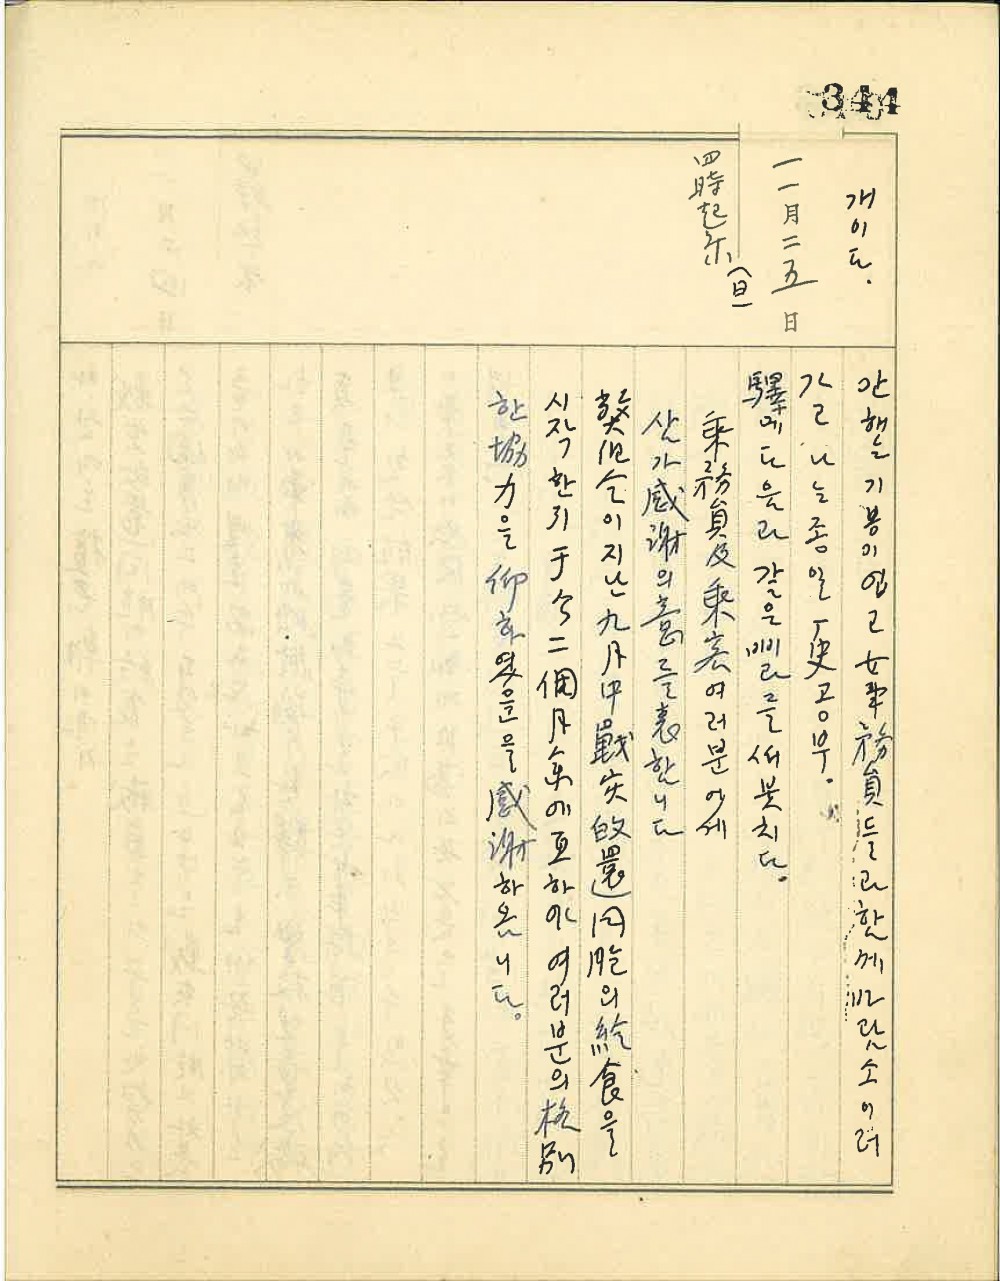 344
개이다.
一一月二五日
(日)
四時起床
안해는 기봉이 업고 女事務員들과 함께 바람 소이러
가고 나는 종일 丁史공부.
驛에 다음과 같은 삐라를 써붗치다.
乘務員及乘客여러분에게
삼가 感謝의 意를 表합니다
發但슨이 지난 九月中 戰災 的還同胞의 給食을
시작한  刂于今 二個月余에 亘하야 여러분의 格別
한 協力을 仰하였음을 感謝하옵니다.